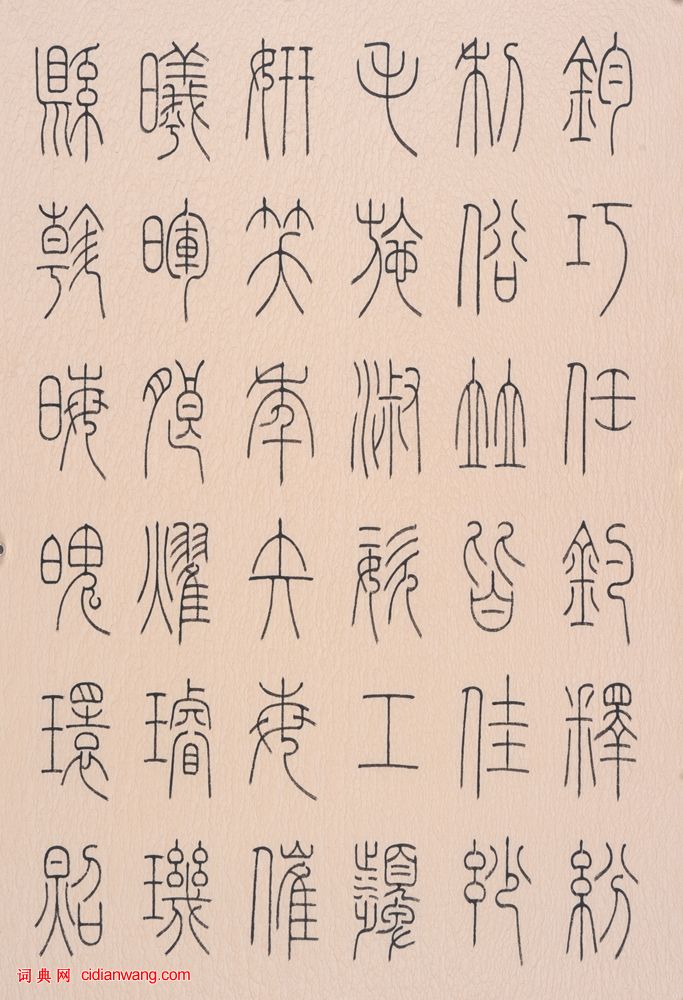 鈞巧任釣釋紛
利俗並皆佳妙
毛施淑姿工顰
妍笑年矢每催
曦暉朗燿璿璣
縣斡晦魄環照
词典网 cidianwang.com